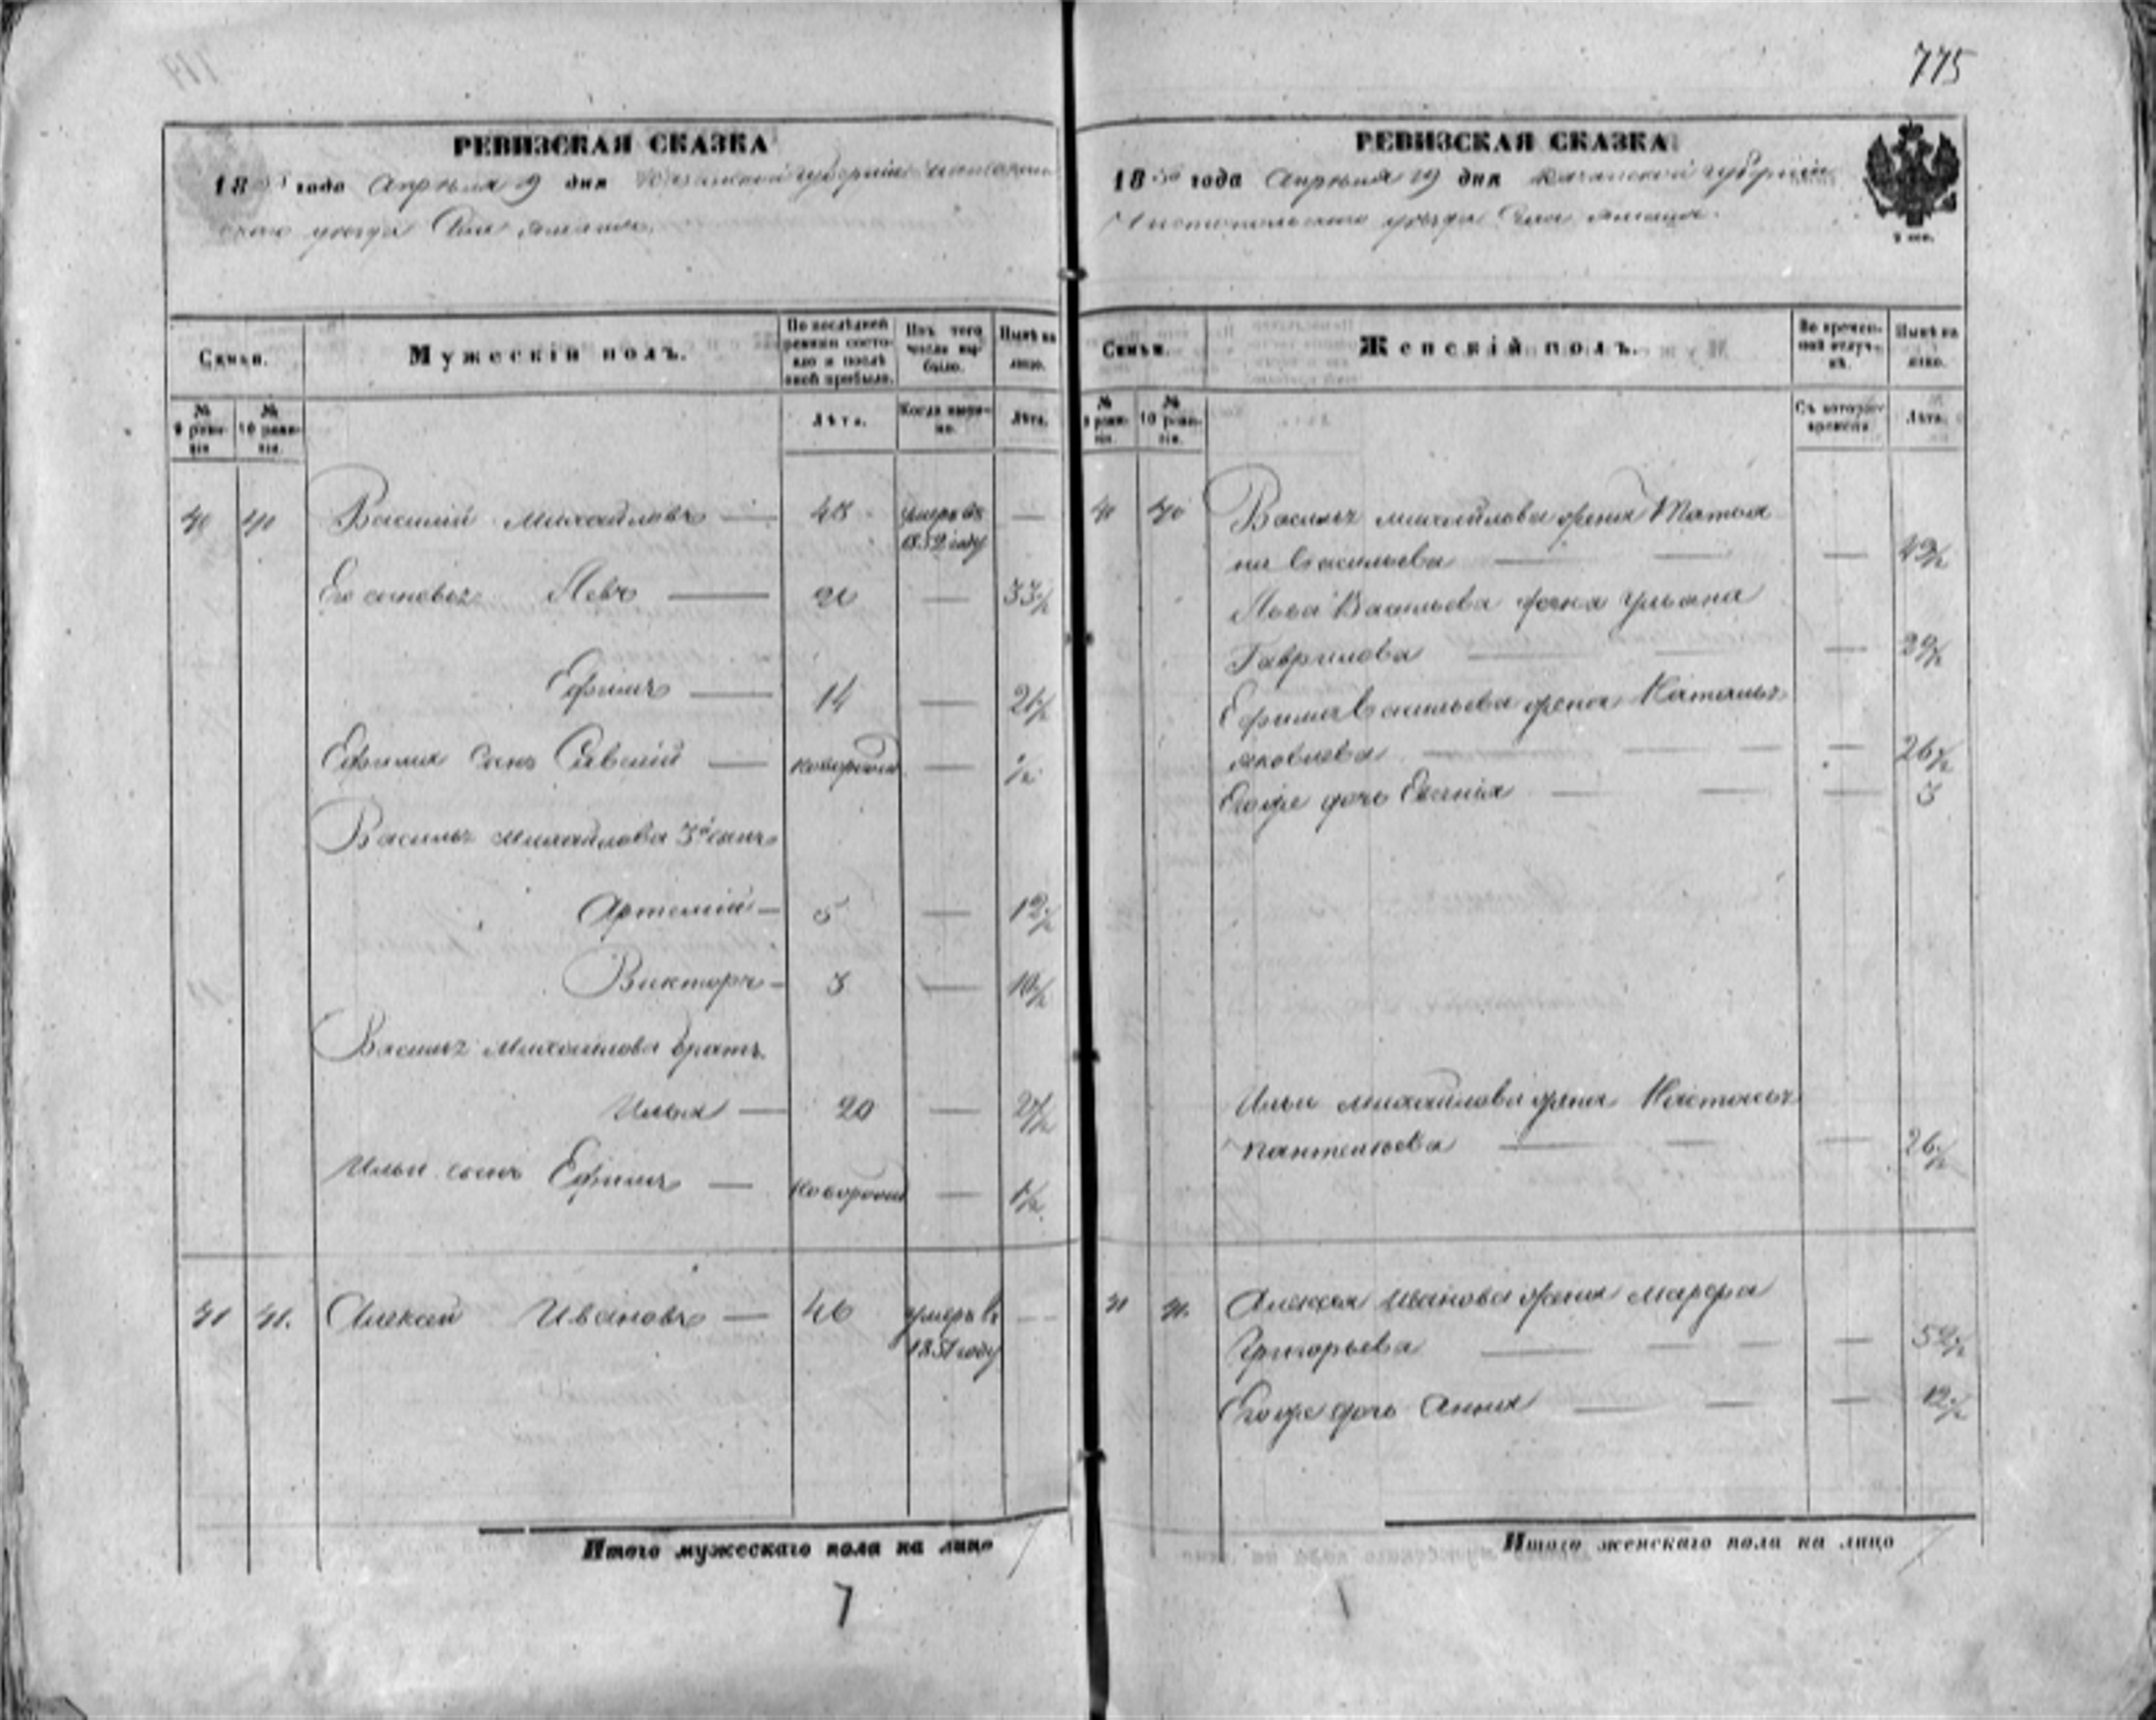 775
РЕВИЗСКАЯ СКАЗКА
18 года Апреля 19 дня Казанской губернии
уезда Села
Семьи.
Мужескій полъ.
По послѣдней ревизіи состояло и послѣ оной прибыло.
Изъ того числа выбыло.
Нынѣ на лицо.
№ 9 ревизіи
№ 10 ревизіи.
Лѣта.
Когда именно.
Лѣта.
40 40 Василий Михайловъ — 48 умеръ въ —
1852 году
Его сыновья Левъ — — 33 1/2
Ефимъ — 14 —
Ефима сынъ — новорожд — 1/2
Василья Михайлова 3й сынъ
Артемій — 5 — 12 1/2
Викторъ — 3 — 10 1/2
Василья Михайлова братъ
Илья — 20 — 27 1/2
Ильи сынъ Ефимъ — новорожд — 1 1/2
41 41. Алексей Ивановъ — 46 умеръ въ —
1851 году
Итого мужескаго пола на лицо 7
7
РЕВИЗСКАЯ СКАЗКА
18 года Апреля 19 дня Казанской губернии
Чистопольского уезда Села
Семьи.
Женскій полъ.
Во временной отлучкѣ.
Нынѣ на лицо.
№ 9 ревизіи.
№ 10 ревизіи.
Съ котораго времени
Лѣта.
40 40 Василья Михайлова жена Татья
на Васильева — — — 49 1/2
Льва Васильева жена Ульяна
Гаврилова — — — 29 1/2
Ефима Васильева жена Наталья
Яковлева — — — 26 1/2
Его же дочь — — — 3
Ильи Михайлова жена Настасья
Пантелеева — — — 26 1/2
41 41. Алексея Иванова жена Марфа
Григорьева — — — 52 1/2
Его же дочь Анна — — — 12 1/2
Итого женскаго пола на лицо 7